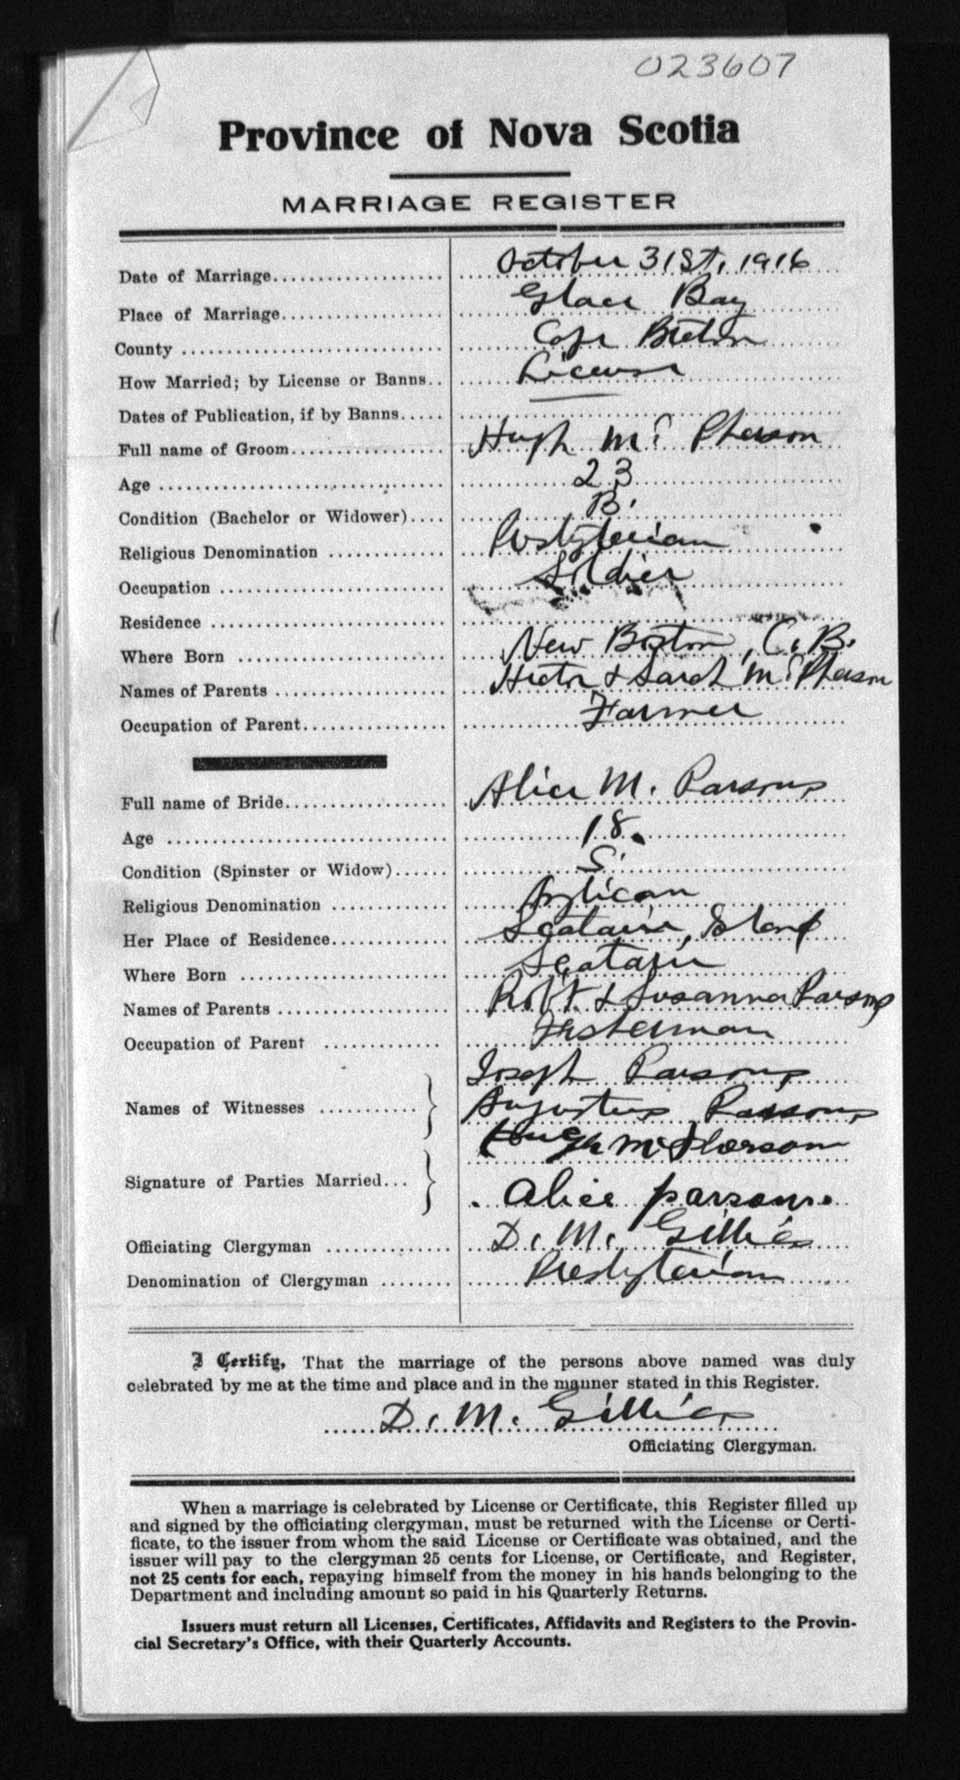 023607
Province of Nova Scotia
MARRIAGE REGISTER
Date of Marriage.................. October 31st, 1916
Place of Marriage.................. Glace Bay
County .................. Cape Breton
How Married; by License or Banns.. License
Dates of Publication, if by Banns.....
Full name of Groom.................. Hugh McPherson
Age .................. 23
Condition (Bachelor or Widower).... B.
Religious Denomination ............. Presbyterian
Occupation .................. Soldier
Residence ..................
Where Born .................. New Boston, C.B.
Names of Parents .................. Hector & Sarah McPherson
Occupation of Parent.................. Farmer
Full name of Bride.................. Alice M. Parsons
Age .................. 18.
Condition (Spinster or Widow)...... S.
Religious Denomination ............. Anglican
Her Place of Residence............. Scatarie, Island
Where Born .................. Scatarie
Names of Parents .................. Robt. & Susanna Parsons
Occupation of Parent ............. Fisherman
Joseph Parsons
Names of Witnesses ........... } Augustus Parsons
Hugh McPherson
Signature of Parties Married... } Alice parsons.
Officiating Clergyman .............. D. M. Gillies
Denomination of Clergyman ........ Presbyterian
I Certify, That the marriage of the persons above named was duly
celebrated by me at the time and place and in the manner stated in this Register.
D. M. Gillies
Officiating Clergyman.
When a marriage is celebrated by License or Certificate, this Register filled up
and signed by the officiating clergyman, must be returned with the License or Certi-
ficate, to the issuer from whom the said License or Certificate was obtained, and the
issuer will pay to the clergyman 25 cents for License, or Certificate, and Register,
not 25 cents for each, repaying himself from the money in his hands belonging to the
Department and including amount so paid in his Quarterly Returns.
Issuers must return all Licenses, Certificates, Affidavits and Registers to the Provin-
cial Secretary's Office, with their Quarterly Accounts.